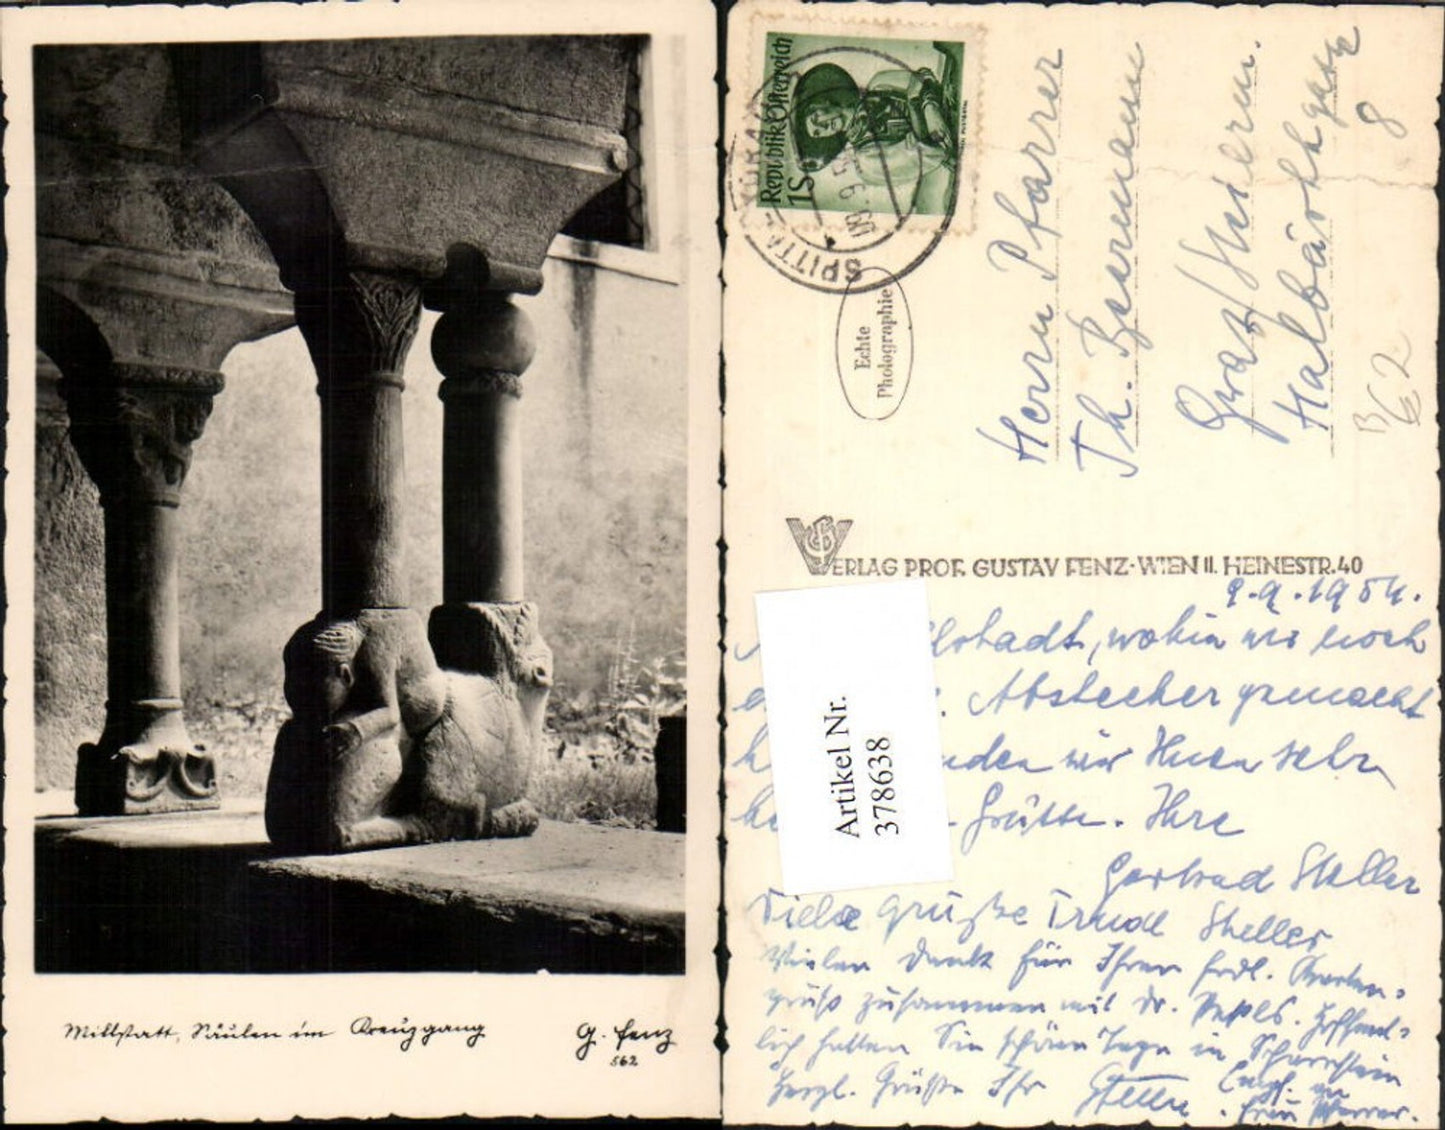 Millstatt, Säulen im Kreuzgang
G. Fenz
562
Republik Österreich
1S
SPITTAL
Echte
Photographie
Herrn Pfarrer
Th. Beermann
Graz
Halbärthgasse
8
B62
VERLAG PROF. GUSTAV FENZ·WIEN II. HEINESTR.40
9.9.1954.
wohin wir noch
Abstecher gemacht
wir Ihnen sehr
Grüße. Ihre
Gertrud Steller
Viele Grüße Trudl Steller
Vielen Dank für Ihren frdl. Karten-
gruß zusammen mit Dr.
lich hatten Sie schöne Tage in
Herzl. Grüße Ihr Steller.
Empf. an
Frau Pfarrer.
Artikel Nr.
378638